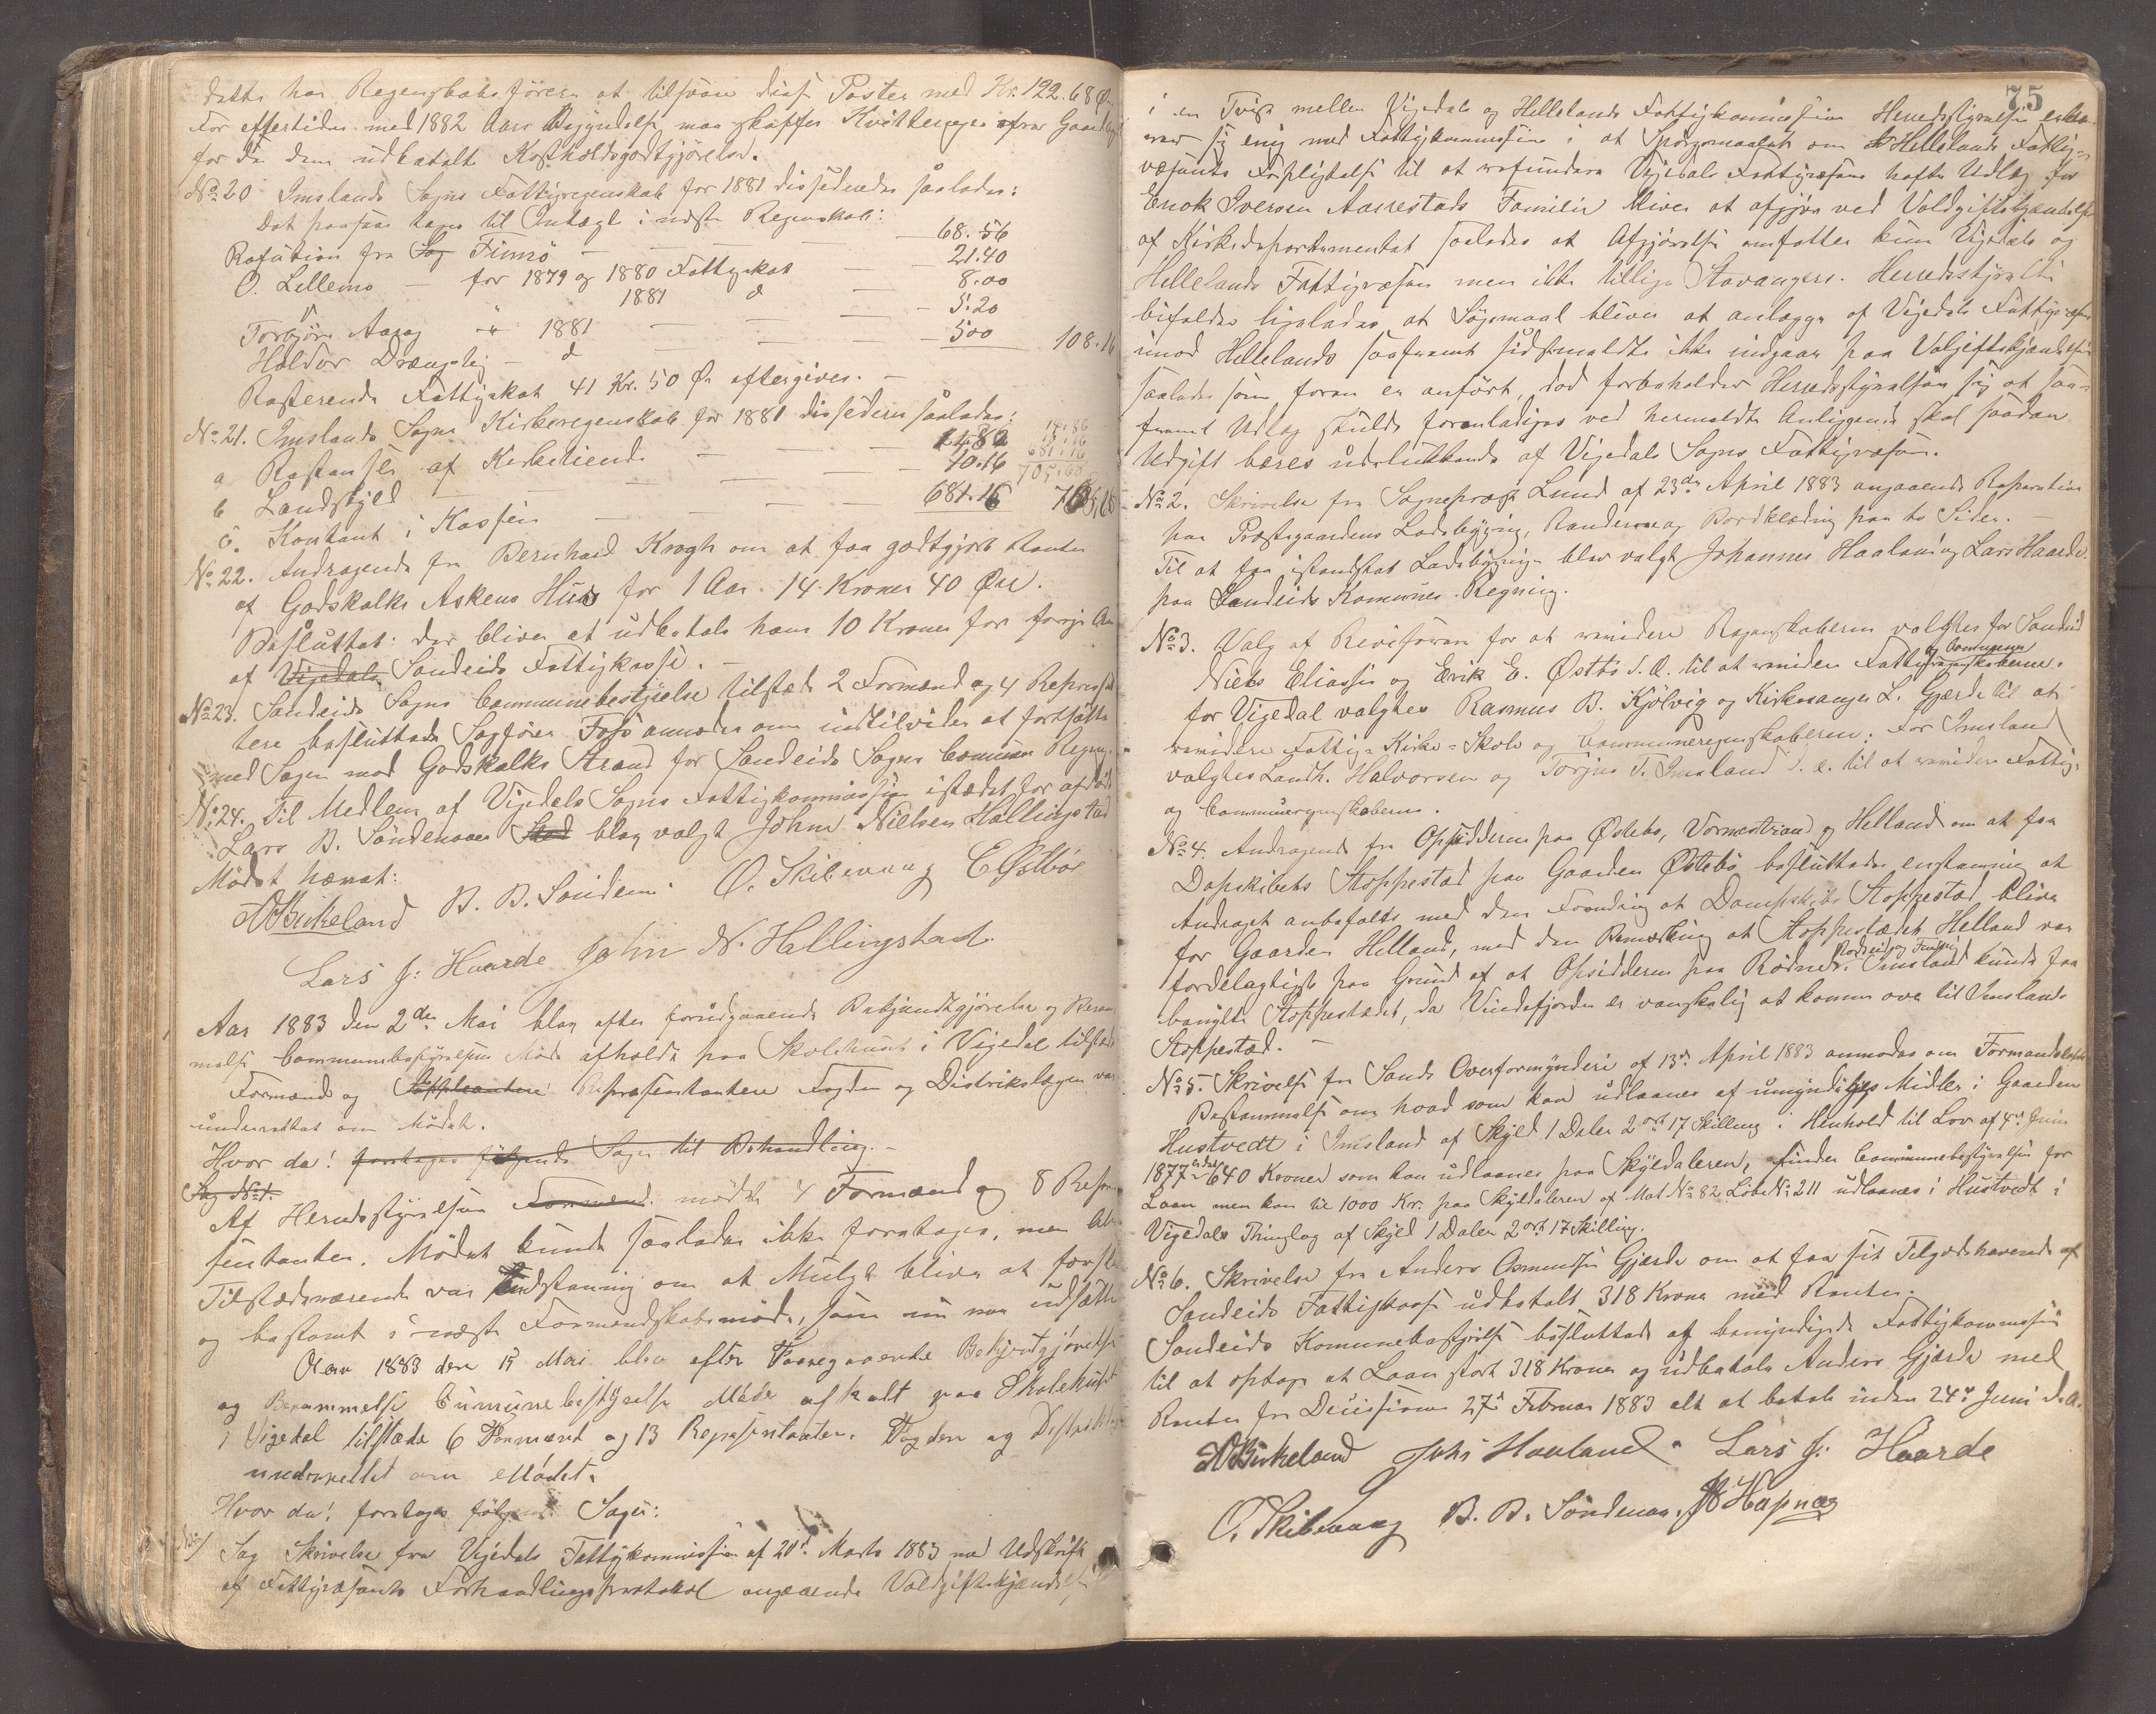 dette har Regenskabsføreren at tilsvare disse Poster med Kr. 122.68 Øre
For eftertiden med 1882 Aars Begyndelse maa skaffes Kvitteringer fra
for den dem udbetalte Kostholdsgodtgjørelse.
No 20 Imslands Sogns Fattigregenskab for 1881 dessideredes saaledes:
Det paaføres tages til Indtægt i næste Regenskab:
Refution fra Sog Finnö — 68.56
O. Lellemo — for 1879 og 1880 Fattigskat — 21.40
" 1881 d — 8.00
Torbjörn Aarag " 1881 — 5.20
Haldor Drængslig — d — 500 108.16
Resterende Fattigskat 41 Kr. 50 Øre eftergives. —
No 21. Imslands Sogns Kirkeregenskab for 1881 dessideres saaledes:
a Restanser af Kirketiende — 14.86
b Landskyld — 10.16
c. Kontant i Kassen — 681.16 705,68
No 22. Andragende fra Bernhard Krogh om at faa godtgjort Renter
af Godskalks Askens Hus for 1 Aar. 14 Kroner 40 Øre.
Besluttet: der bliver at udbetale ham 10 Kroner for forrige Aar
af Vigedals Sandeids Fattigkasse. —
No 23. Sandeids Sogns Communebestyrelse tilstede 2 Formænd og 4 Repræsen
tere besluttede Sagfører Fosö anmodes om indtilvidre at fortsætte
med Sagen mod Godskalks Strand for Sandeids Sogns Commun Regning.
No 24. Til Medlem af Vigedals Sogns Fattigkommission istedet for afdøde
Lars B. Söndenaa Sted blev valgt John Nielsen Hallingstad
Mödet hævet:
A Birkeland B. B. Söndenaa O. Skibevaag E Østbö
Lars J: Haarde John N. Hallingstad.
Aar 1883 den 2den Mai blev efter forudgaaende Bekjendtgjørelse og Beram
melse Communebestyrelsens Möde afholdt paa Skolehuset i Vigedal tilstede
Formænd og Suppleantere Repræsentantere Fogden og Distriktslægen var
underrettet om Mödet.
Hvor da! foretages følgende Sager til Behandling. —
Sag No 1.
Af Heredsstyrelsen Formænd mödte 4 Formænd og 8 Repræ
sentanter. Mödet kunde saaledes ikke foretages, men de
Tilstedeværende var Endstemmig om at Mulgt bliver at foresl
og bestemt i næste Formandskabsmöde, som nu maa udsætte
Aar 1883 den 19 Mai blev efter Foregaaende Bekjentgjörelse
og Berammelse Cummunebestyrelse Möde afholt paa Skolehuset
i Vigedal tilstede 6 Formænd og 13 Repræsentanter. Fogden og Distriktsl
underrettet om Mödet.
Hvor da! foretages følgende Sager:
No 1/ Sag Skrivelse fra Vigedals Fattigkommission af 20de Marts 1883 med Udskrift
af Fattigvæsents Forhandlingsprotokol angaaende Voldgiftskjendelse
75
i en Tvist mellem Vigedals og Hellelands Fattigkommission Heredsstyrelsen erklæ
rer sig enig med Fattigkommissionen i at Spørgsmaalet om Hellelands Fattig=
væsents Forpligtelse til at refundere Vigedals Fattigvæsens hafte Udlæg for
Enok Iversen Aarrestads Familie bliver at afgjöre ved Voldgiftskjendelse
af Kirkedepartementet saaledes at Afgjörelse omfatter kun Vigedals og
Hellelands Fattigvæsen men ikke tillige Stavangers. Heredsstyrelsen
bifalder ligeledes at Søgsmaal bliver at anlægge af Vigedals Fattigvæsen
imod Hellelands saafremt sidstmeldte ikke indgaar paa Volgiftskjendelse
saaledes som foran er anfört, dog forbeholder Heredsstyrelsen sig at saa=
fremt Udlæg skulde foranlediges ved hermeldte Anliggende skal saadan
Udgift bæres udelukkende af Vigedals Sogns Fattigvæsen.
No 2. Skrivelse fra Sogneprest Lund af 23de April 1883 angaaende Reparation
paa Præstegaardens Ladebygning, Randerne og Bordklædning paa to Sider. —
Til at faa istandsat Ladebygningen blev valgt Johannes Haaland og Lars Haarde
paa Sandeids Komunes Regning.
No 3. Valg af Revisorer for at revidere Regenskaberne valgtes for Sandeid
Niels Eliassen og Erik E. Østbö d. Æ. til at revidere Fattig og Communeregenskaberne.
for Vigedal valgtes Rasmus B. Kjölvig og Kirkesanger L. Gjerde til at
revidere Fattig= Kirke= Skole og Communeregenskaberne: For Imsland
valgtes Landh. Halvorsen og Torjus T. Imsland d. æ. til at revidere Fattig-
og Communregnskaberne.
No 4. Andragende fra Opsidderne paa Östebö, Vormestrand og Helland om at faa
Dampskibets Stoppested paa Gaarden Östebö besluttedes enstemmig at
Andraget anbefales med den Forandring at Dampskibs Stoppested bliver
for Gaarden Helland, med den Bemærkning at Stoppestedet Helland var
fordelagtigst paa Grund af at Opsidderne paa Rödne, Imsland kunde faa
benytte Stoppestedet, da Vindefjorden er vanskelig at komme over til Imslands
Stoppested. —
No 5. Skrivelse fra Sands Overformynderi af 13de April 1883 anmodes om Formandskabets
Bestemmelse om hvad som kan udlaanes af umyndiges Midler i Gaarden
Hustvedt i Imsland af Skyld 1 Daler 2 ort 17 Skilling i Henhold til Lov af 4de Juni
1877 640 Kroner som kan udlaanes paa Skyldaleren, finder Communebestyrelsen for
Laan men kan til 1000 Kr. paa Skyldaleren af Mat. No 82 Löbe No 211 udlaanes i Hustvedt i
Vigedals Thinglag af Skyld 1 Daler 2 ort 17 Skilling.
No 6. Skrivelse fra Anders Asmunsen Gjerde om at faa sit Tilgodehavende af
Sandeids Fattigkasse udbetalt 318 Kroner med Renter.
Sandeids Komunebestyrelse besluttede at bemyndige Fattigkommission
til at optage et Laan stort 318 Kroner og udbetale Anders Gjerde med
Renter fra Decisionen 27de Februar 1883 alt at betale inden 24de Juni d. A.
A Birkeland Johs Haaland. Lars J: Haarde
O. Skibevaag B. B. Söndenaa.